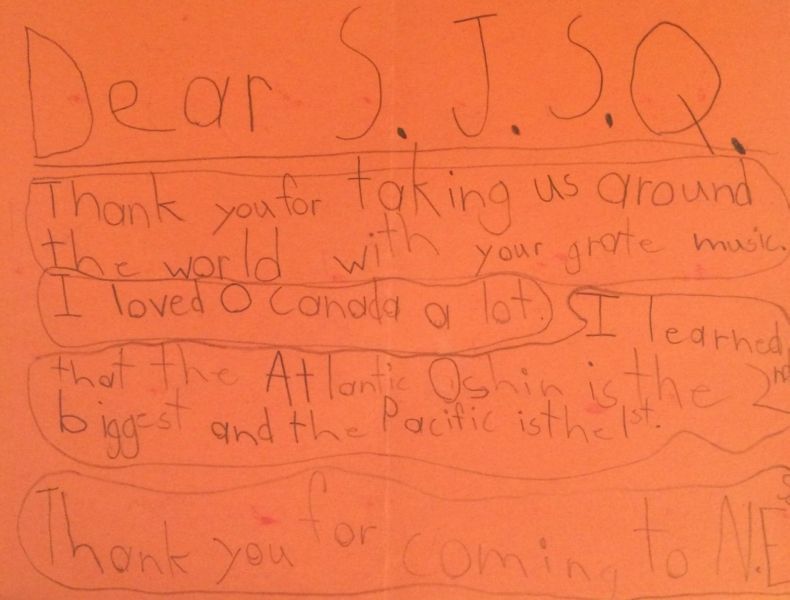 Dear S. J. S. Q.
Thank you for taking us around
the world with your grate music.
I loved O Canada a lot. I learned
that the Atlantic Oshin is the 2nd
biggest and the Pacific is the 1st.
Thank you for coming to N.E